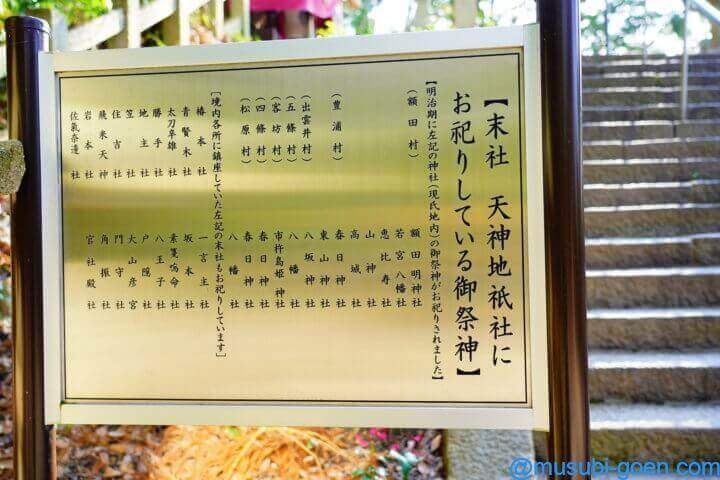 【末社 天神地祇社に
お祀りしている御祭神】
【明治期に左記の神社(現氏地内)の御祭神がお祀りされました】
(額田村) 額田明神社
若宮八幡社
恵比寿社
山神社
高城社
(豊浦村) 春日神社
東山神社
(出雲井村) 八坂神社
(五條村) 八幡社
(客坊村) 市杵島姫神社
(四條村) 春日神社
(松原村) 春日神社
八幡社
[境内各所に鎮座していた左記の末社もお祀りしています]
椿本社 一言主社
青賢木社 坂本社
太刀辛雄社 素箋嗚命社
勝手社 八王子社
地主社 戸隠社
笠社 大山彦宮
住吉社 門守社
飛来天神社 角振社
岩本社 官社殿社
佐氣奈邊社
@musubi-goen.com